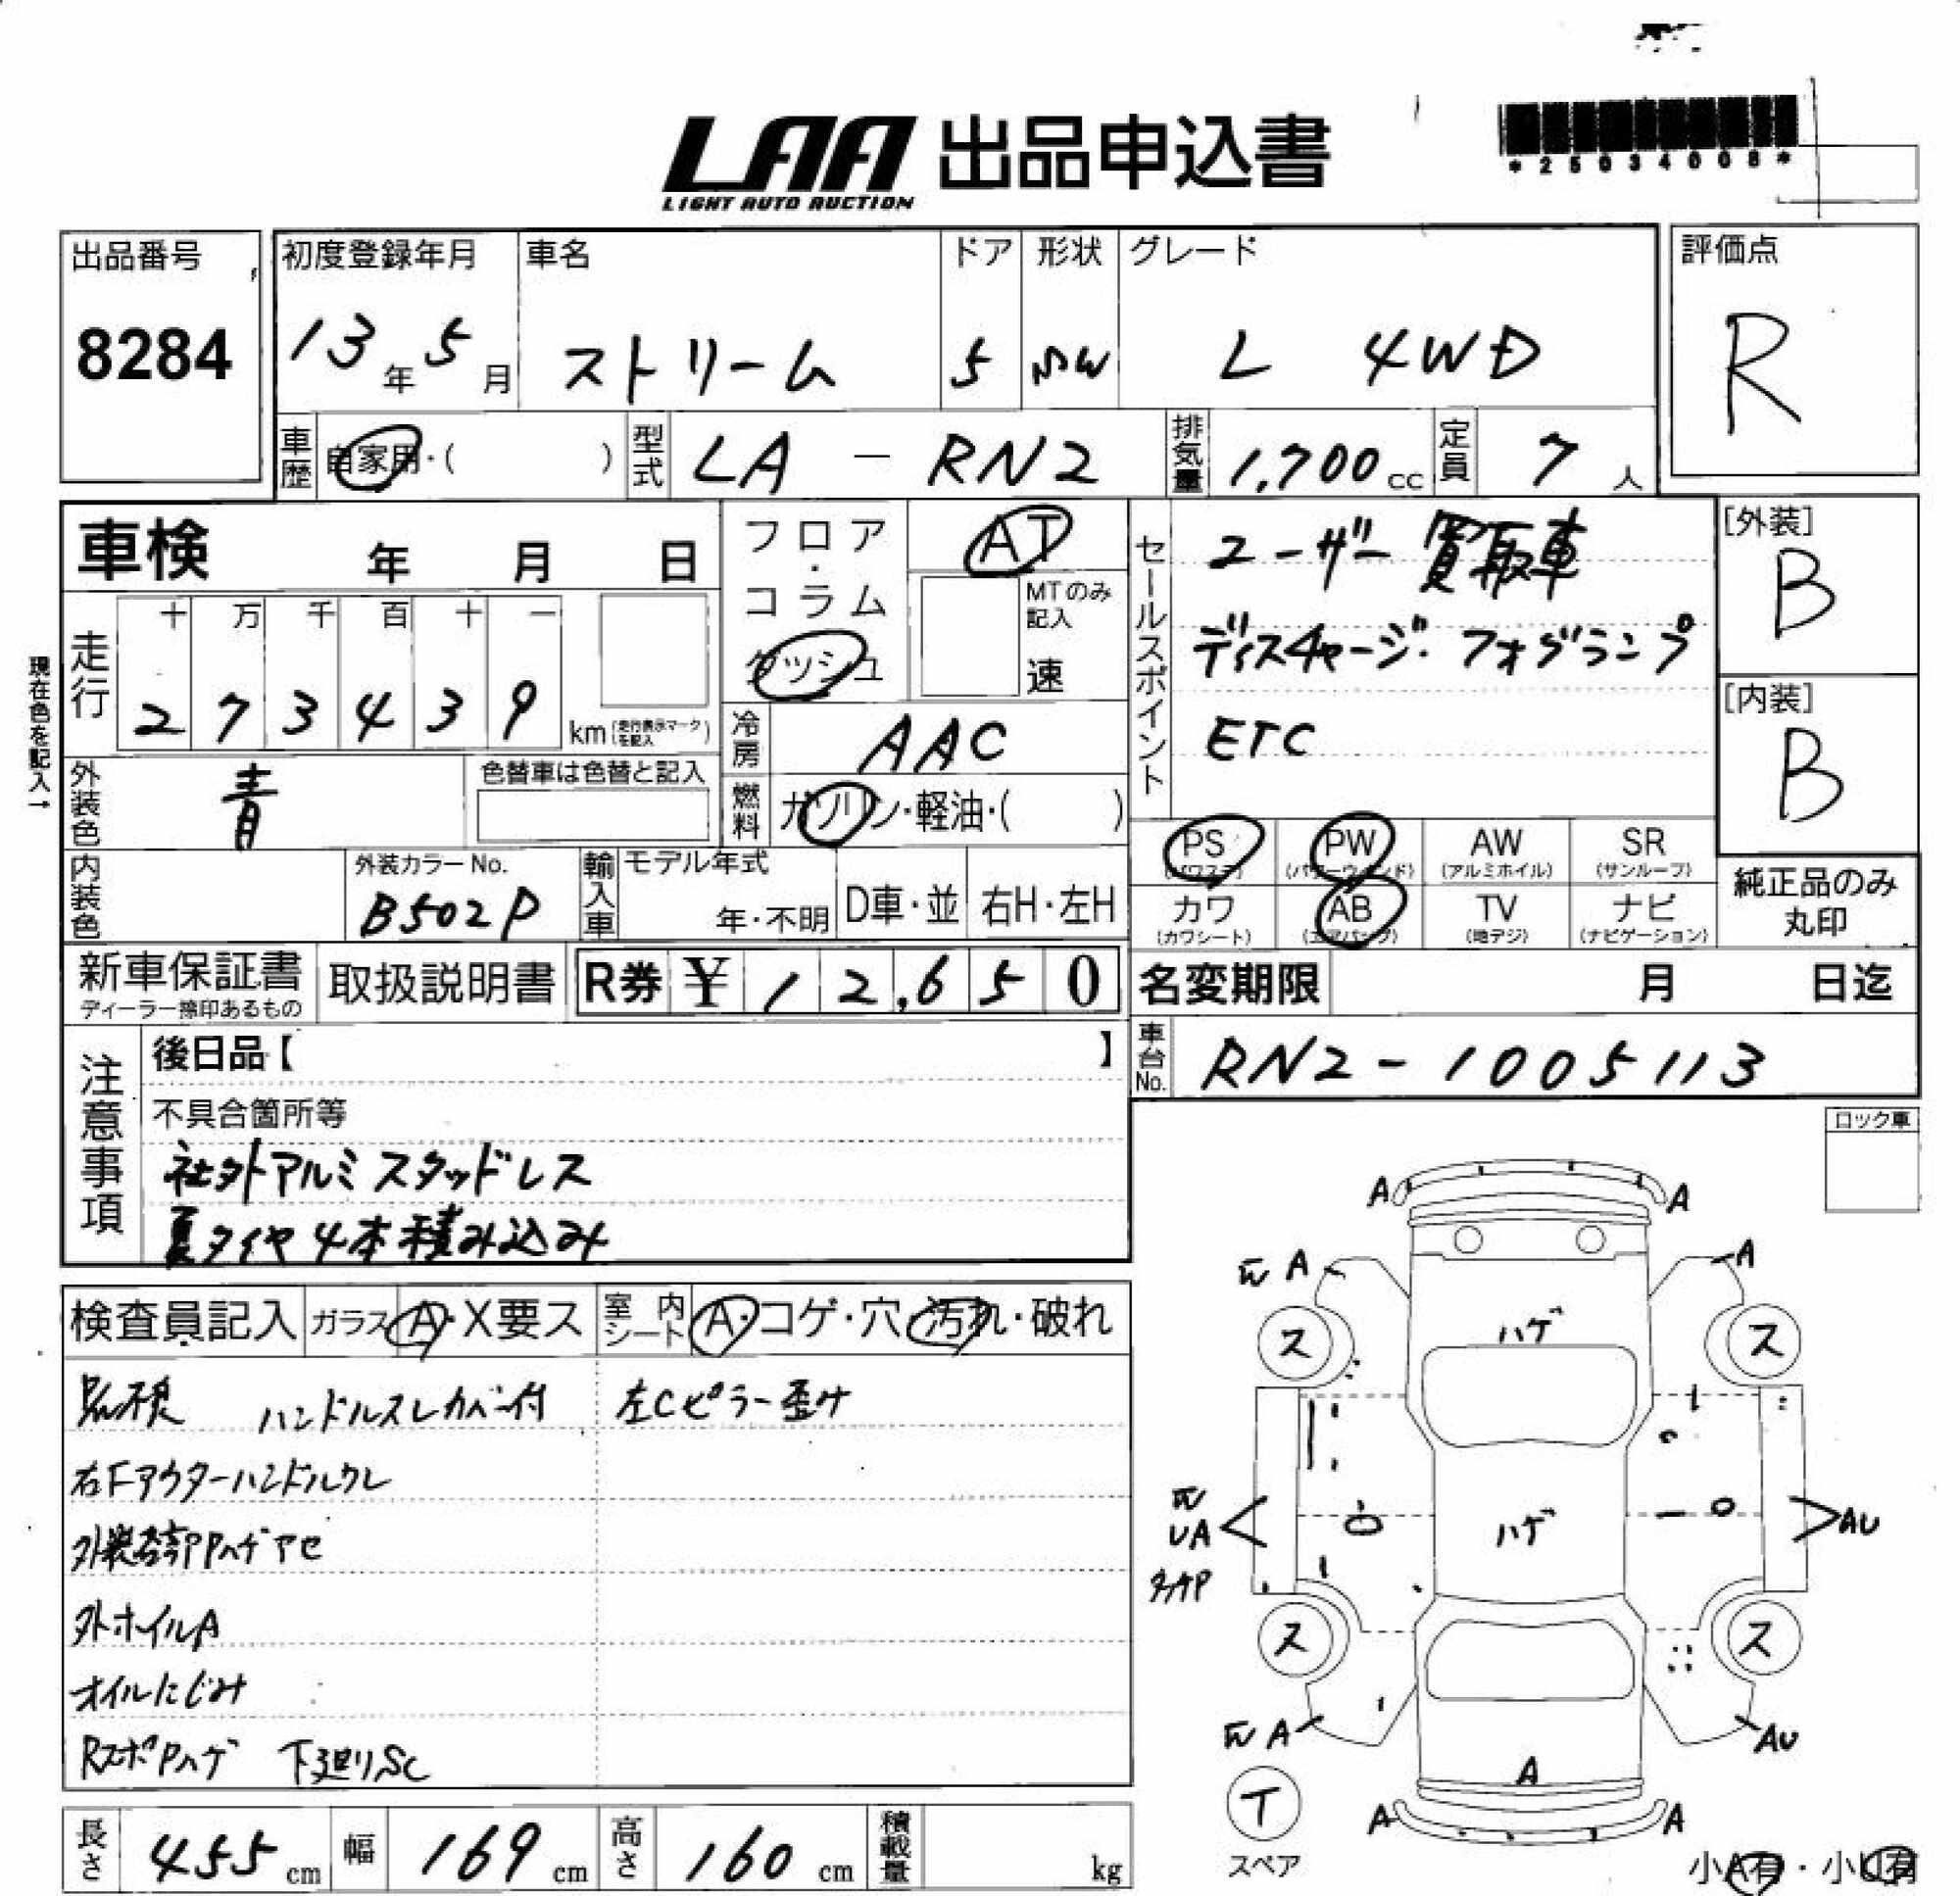 LAA 出品申込書
LIGHT AUTO AUCTION
*25034008*
出品番号
8284
初度登録年月
13年5月
車名
ストリーム
ドア
5
形状
SW
グレード
L 4WD
評価点
R
車歴
自家用・( )
型式
LA - RN2
排気量
1,700cc
定員
7人
車検 年 月 日
フロア・コラム
ダッシュ
AT
MTのみ記入
速
セールスポイント
ユーザー買取車
ディスチャージ・フォグランプ
ETC
[外装]
B
[内装]
B
現在色を記入→
走行
十 万 千 百 十 一
2 7 3 4 3 9
km (走行表示マークを記入)
冷房
AAC
外装色
青
色替車は色替と記入
燃料
ガソリン・軽油・( )
PS (パワステ)
PW (パワーウィンド)
AW (アルミホイル)
SR (サンルーフ)
カワ (カワシート)
AB (エアバッグ)
TV (地デジ)
ナビ (ナビゲーション)
純正品のみ丸印
内装色
外装カラーNo.
B502P
輸入車
モデル年式
年・不明
D車・並
右H・左H
新車保証書
ディーラー捺印あるもの
取扱説明書
R券 ¥12,650
名変期限 月 日迄
注意事項
後日品【 】
不具合箇所等
社外アルミスタッドレス
夏タイヤ4本積み込み
車台No.
RN2-1005113
ロック車
検査員記入
ガラス A・X要ス
室内シート A・コゲ・穴・汚れ・破れ
ハンドルスレカバー付
左Cピラー歪み
右Fアウターハンドルワレ
外ホイルA
オイルにじみ
RスポPハゲ 下廻りSC
A A
A A
ハゲ
ス ス
UA
ハゲ
AU
ス ス
A AU
A
A A
T
スペア
小A有・小U有
長さ
455cm
幅
169cm
高さ
160cm
積載量
kg